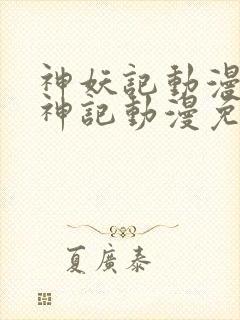 神妖記動漫
神記動漫免
夏廣泰